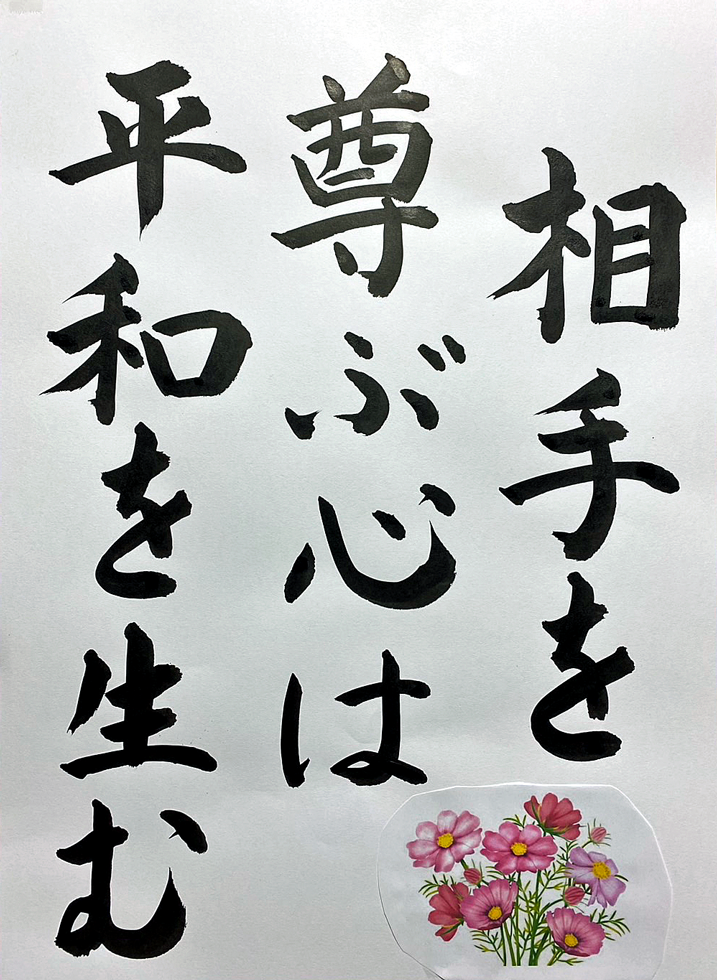 相手を
尊ぶ心は
平和を生む